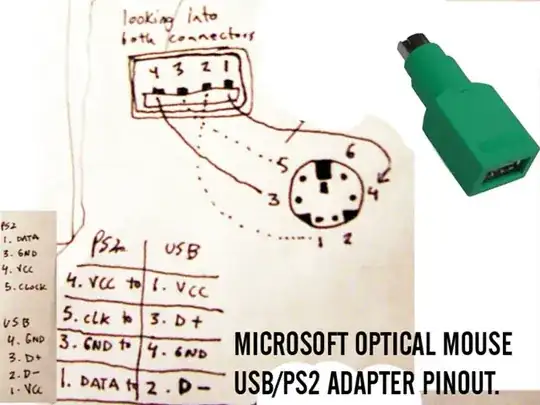 looking into
both connectors
4 3 2 1
6
5
4
3
1 2
PS2 USB
4. VCC to 1. VCC
5. CLK to 3. D+
3. GND to 4. GND
1. DATA to 2. D-
PS2
1. DATA
3. GND
4. VCC
5. CLOCK
USB
4. GND
3. D+
2. D-
1. VCC
MICROSOFT OPTICAL MOUSE
USB/PS2 ADAPTER PINOUT.